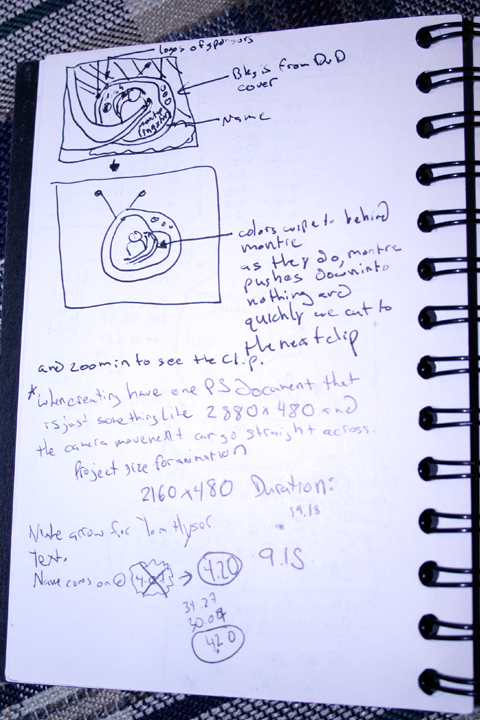 Logos of sponsors
Bkg is from DVD
cover
Name
colors swipe to behind
montre
as they do, montre
pushes down into
nothing and
quickly we cut to
the next clip
and zoom in to see the clip.
* when creating have one PS Document that
is just something like 2880x480 and
the camera movement can go straight across.
Project size for animation
2160x480 Duration:
19.15
Make arrow for Tom Hysor
Text.
Name comes on @ → 4.20 9.15
30.04
4.20